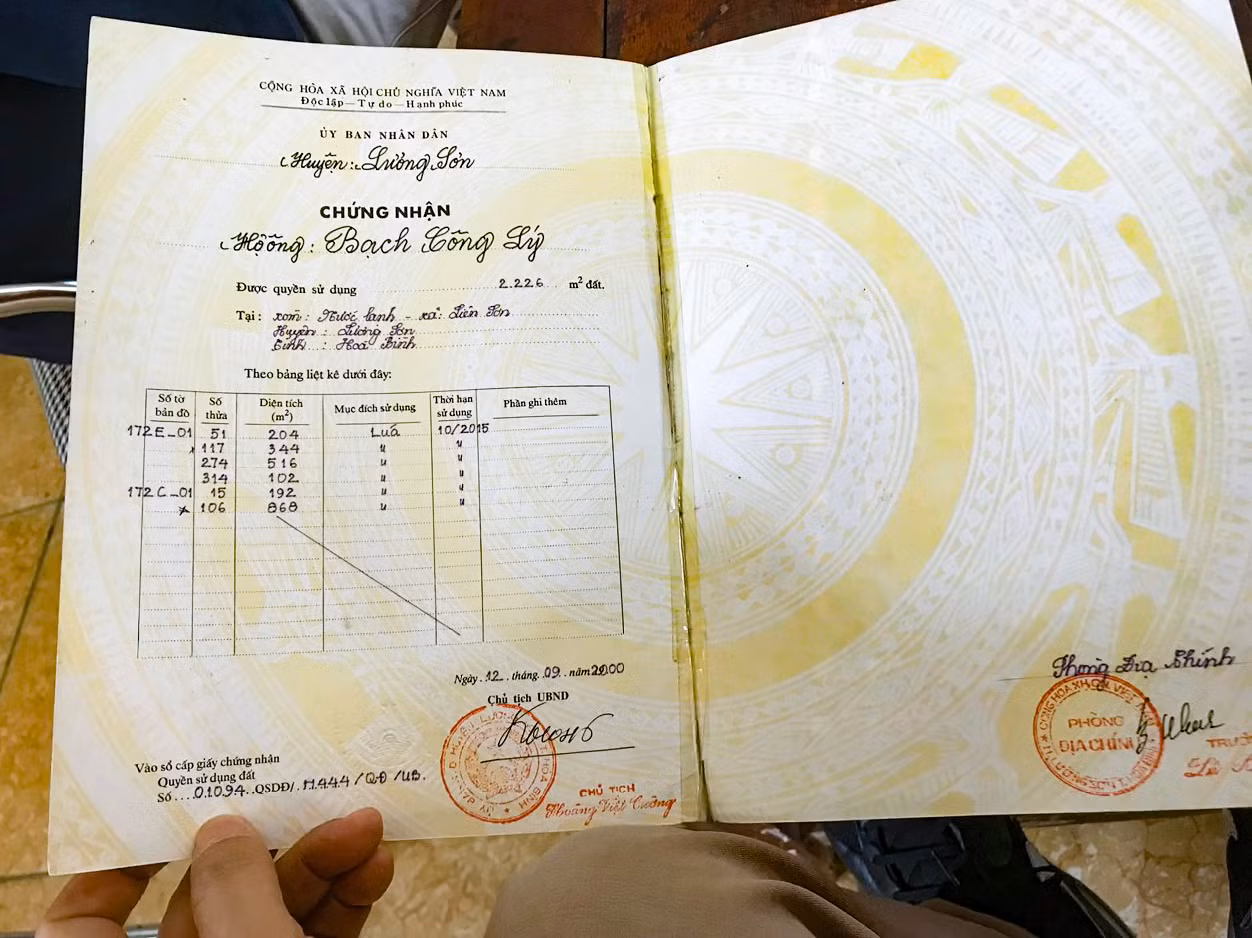 CỘNG HÒA XÃ HỘI CHỦ NGHĨA VIỆT NAM
Độc lập — Tự do — Hạnh phúc
ỦY BAN NHÂN DÂN
Huyện: Lương Sơn
CHỨNG NHẬN
Hộ ông: Bạch Công Lý
Được quyền sử dụng 2.226 m² đất.
Tại: xóm: Nước lạnh - xã: Liên Sơn
Huyện: Lương Sơn
Tỉnh: Hoà Bình
Theo bảng liệt kê dưới đây:
Số tờ bản đồ Số thửa Diện tích (m²) Mục đích sử dụng Thời hạn sử dụng Phần ghi thêm
172E-01 51 204 Lúa 10/2015
117 344 " "
274 516 " "
314 102 " "
172C-01 15 192 " "
106 868 " "
Ngày 12 tháng 09 năm 2000
Chủ tịch UBND
Vào sổ cấp giấy chứng nhận
Quyền sử dụng đất
Số 01094 QSDĐ/ H.444/QĐ/UB.
CHỦ TỊCH
Hoàng Việt Cường
Phòng Địa Chính
PHÒNG
ĐỊA CHÍNH